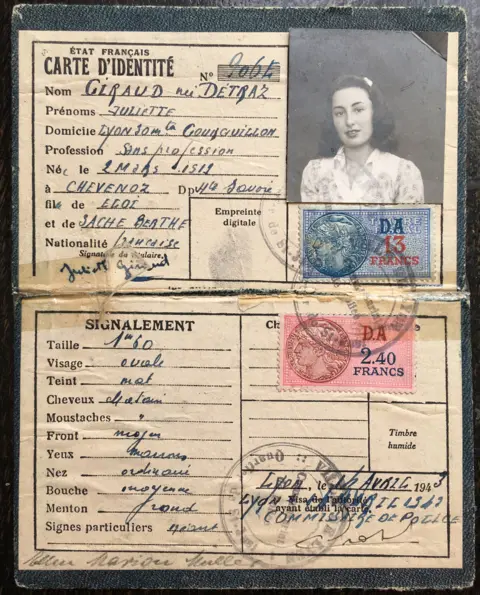 ÉTAT FRANÇAIS
CARTE D'IDENTITÉ
Nº 9064
Nom GIRAUD née DETRAZ
Prénoms JULIETTE
Domicile LYON 30 mtée Gourguillon
Profession Sans profession
Née le 2 MARS 1919
à CHEVENOZ Dpt Hte Savoie
fille de
et de SACHE BERTHE
Nationalité française
Signature du titulaire.
Juliette Giraud
Empreinte
digitale
D.A
13
FRANCS
SIGNALEMENT
Taille 1m60
Visage ovale
Teint mat
Cheveux châtain
Moustaches "
Front moyen
Yeux marrons
Nez ordinaire
Bouche moyenne
Menton rond
Signes particuliers néant
D.A
2.40
FRANCS
Timbre
humide
Lyon, le AVRIL 1943
Visa de l'autorité
ayant établi la carte.
LYON AVRIL 1943
COMMISSAIRE DE POLICE
Marion